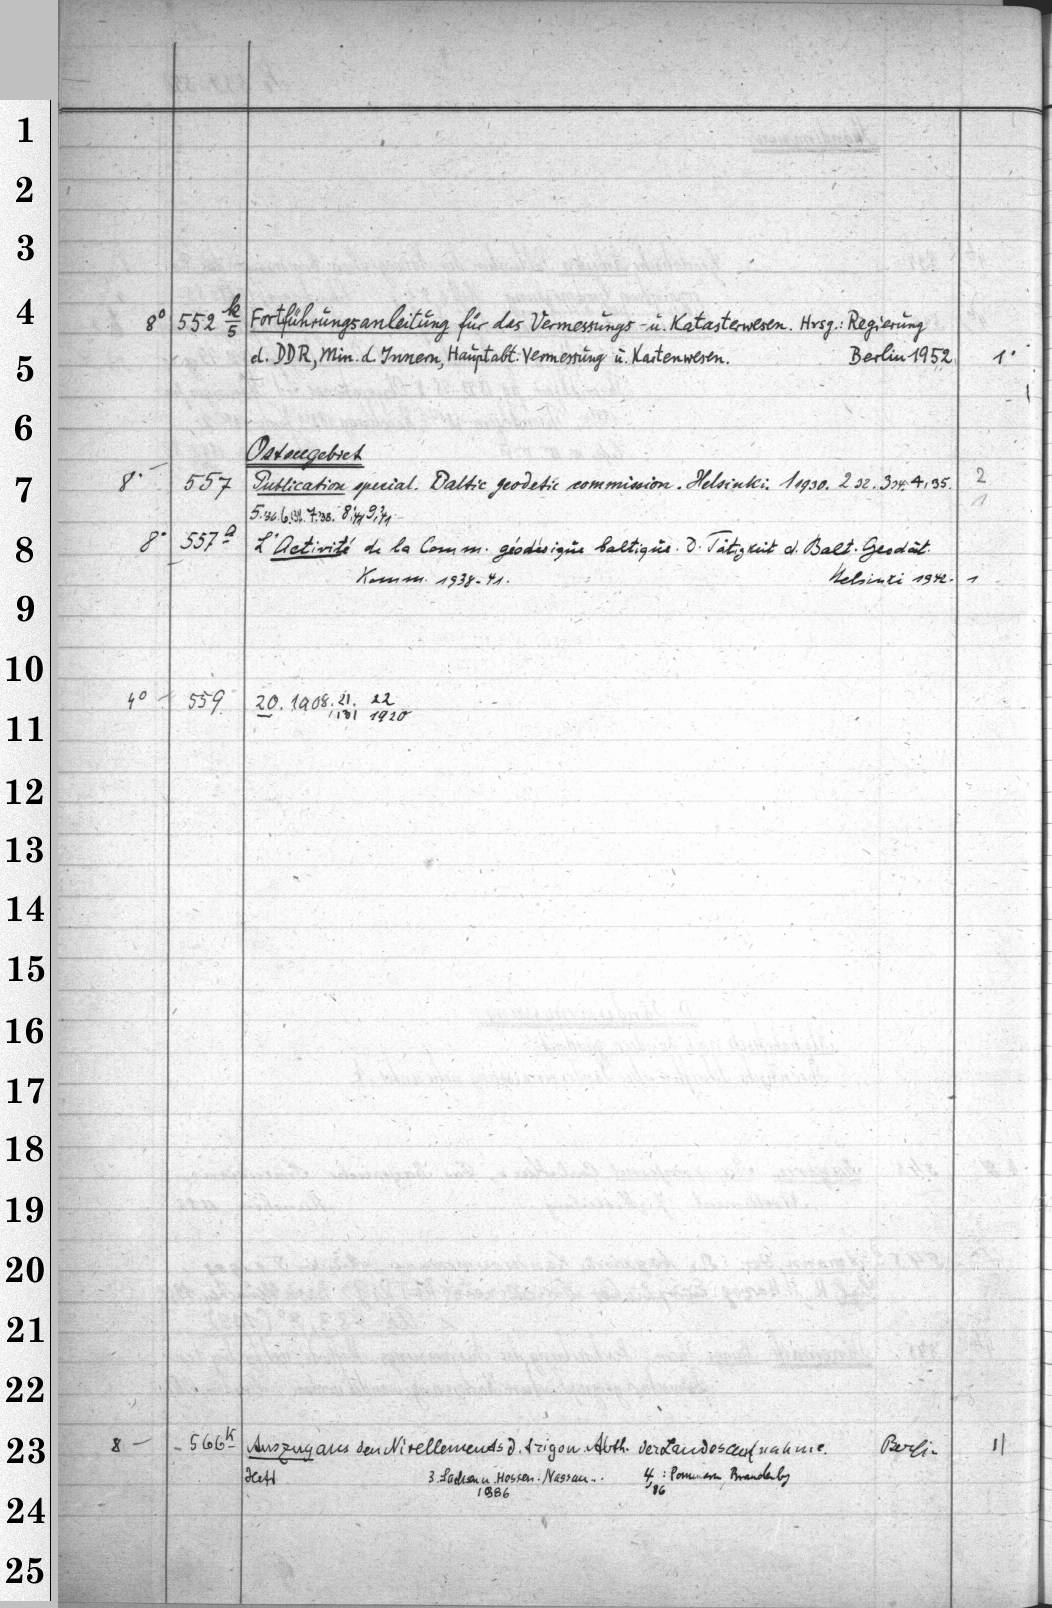 1
2
3
4
8° 552 k/5 Fortführungsanleitung für das Vermessungs- u. Katasterwesen. Hrsg.: Regierung
5
d. DDR, Min. d. Innern, Hauptabt. Vermessung u. Kartenwesen. Berlin 1952. 1
6
Ostseegebiet
7
8° 557 Publication special. Baltic geodetic commission. Helsinki. 1 1930. 2 32. 3 34. 4, 35. 2
5.36. 6, 7.38. 8,41 9,41 1
8
8° 557 a L'Activité de la Comm. géodésique baltique. D. Tätigkeit d. Balt. Geodät.
Komm. 1938-41. Helsinki 1942. 1
9
10
4° 559. 20. 1908. 21. 22
11
1920
12
13
14
15
16
17
18
19
20
21
22
23
8 566 k Auszug aus den Nivellements d. trigon. Abth. der Landesaufnahme. Berlin
Heft 3. Sachsen u. Hessen-Nassau. 4 : Pommern, Brandenbg
1886 86
24
25